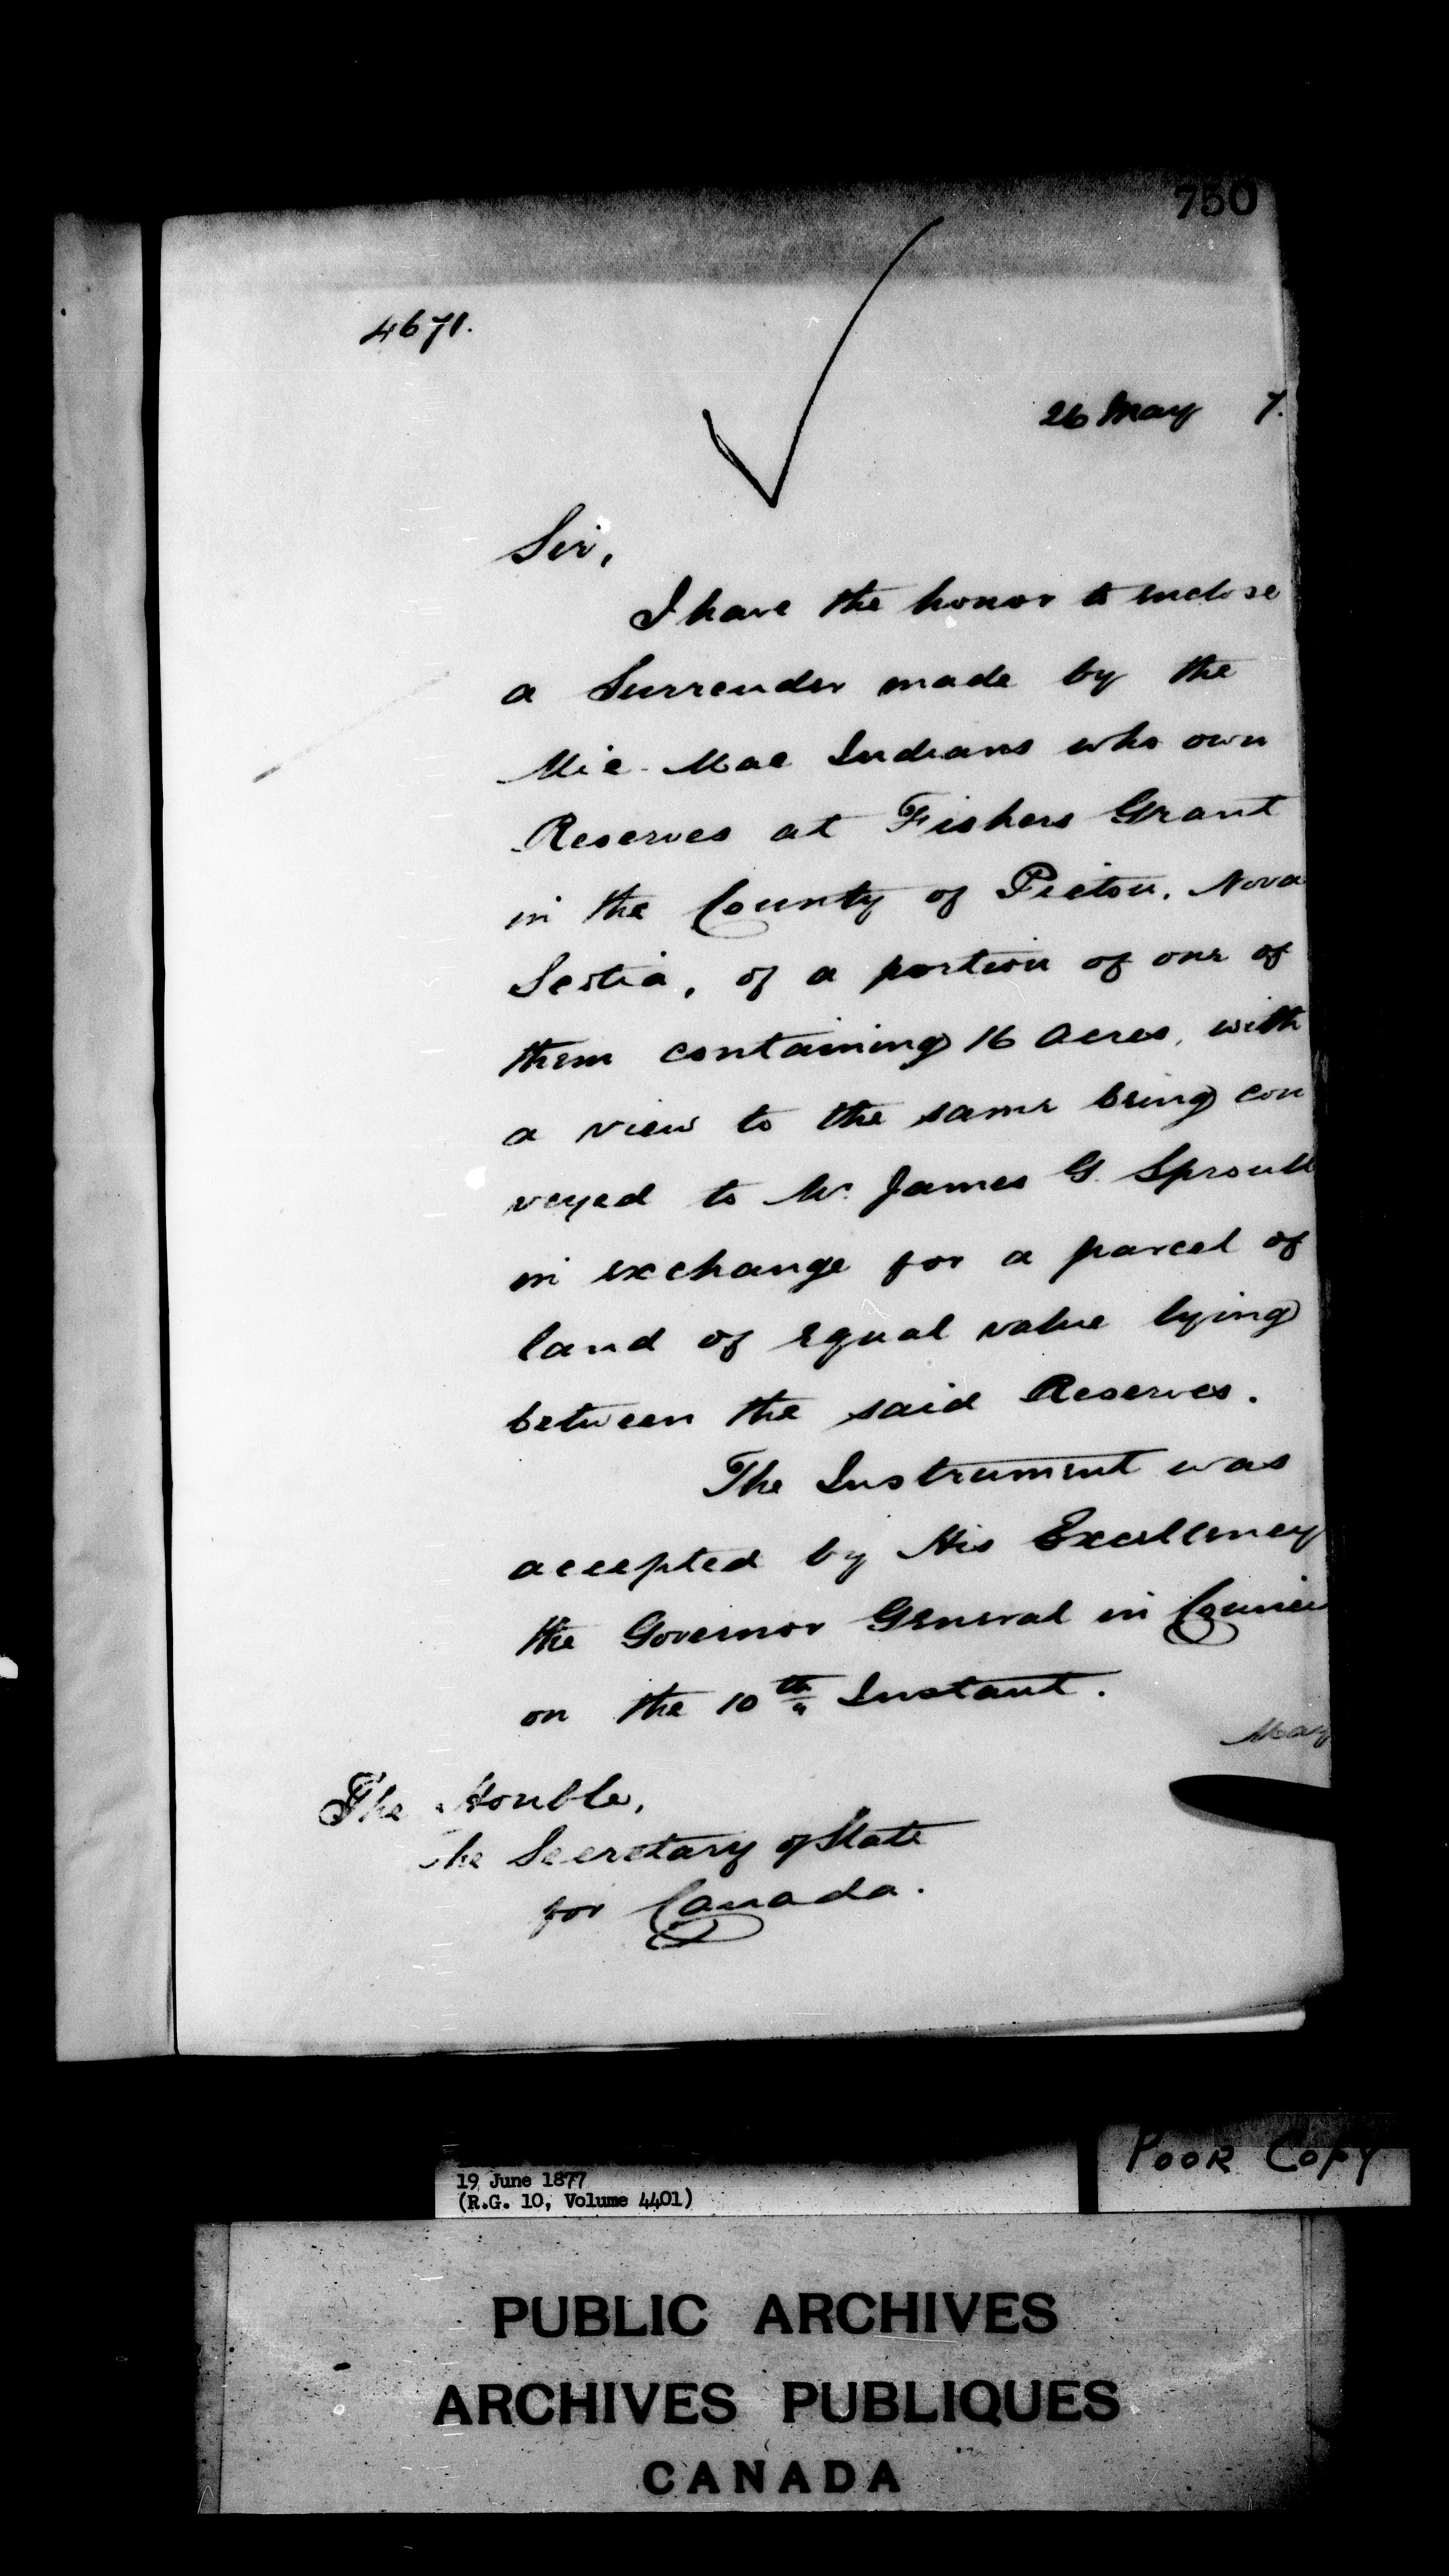 750
4671.
26 May 7.
Sir,
I have the honor to enclose
a Surrender made by the
Mic-Mac Indians who own
Reserves at Fishers Grant
in the County of Pictou, Nova
Scotia, of a portion of one of
them containing 16 Acres, with
a view to the same being con
veyed to Mr. James G. Sproull
in exchange for a parcel of
land of equal value lying
between the said Reserves.
The Instrument was
accepted by His Excellency
the Governor General in Council
on the 10th Instant.
May
The Honble,
The Secretary of State
for Canada.
19 June 1877
(R.G. 10, Volume 4401)
POOR COPY
PUBLIC ARCHIVES
ARCHIVES PUBLIQUES
CANADA